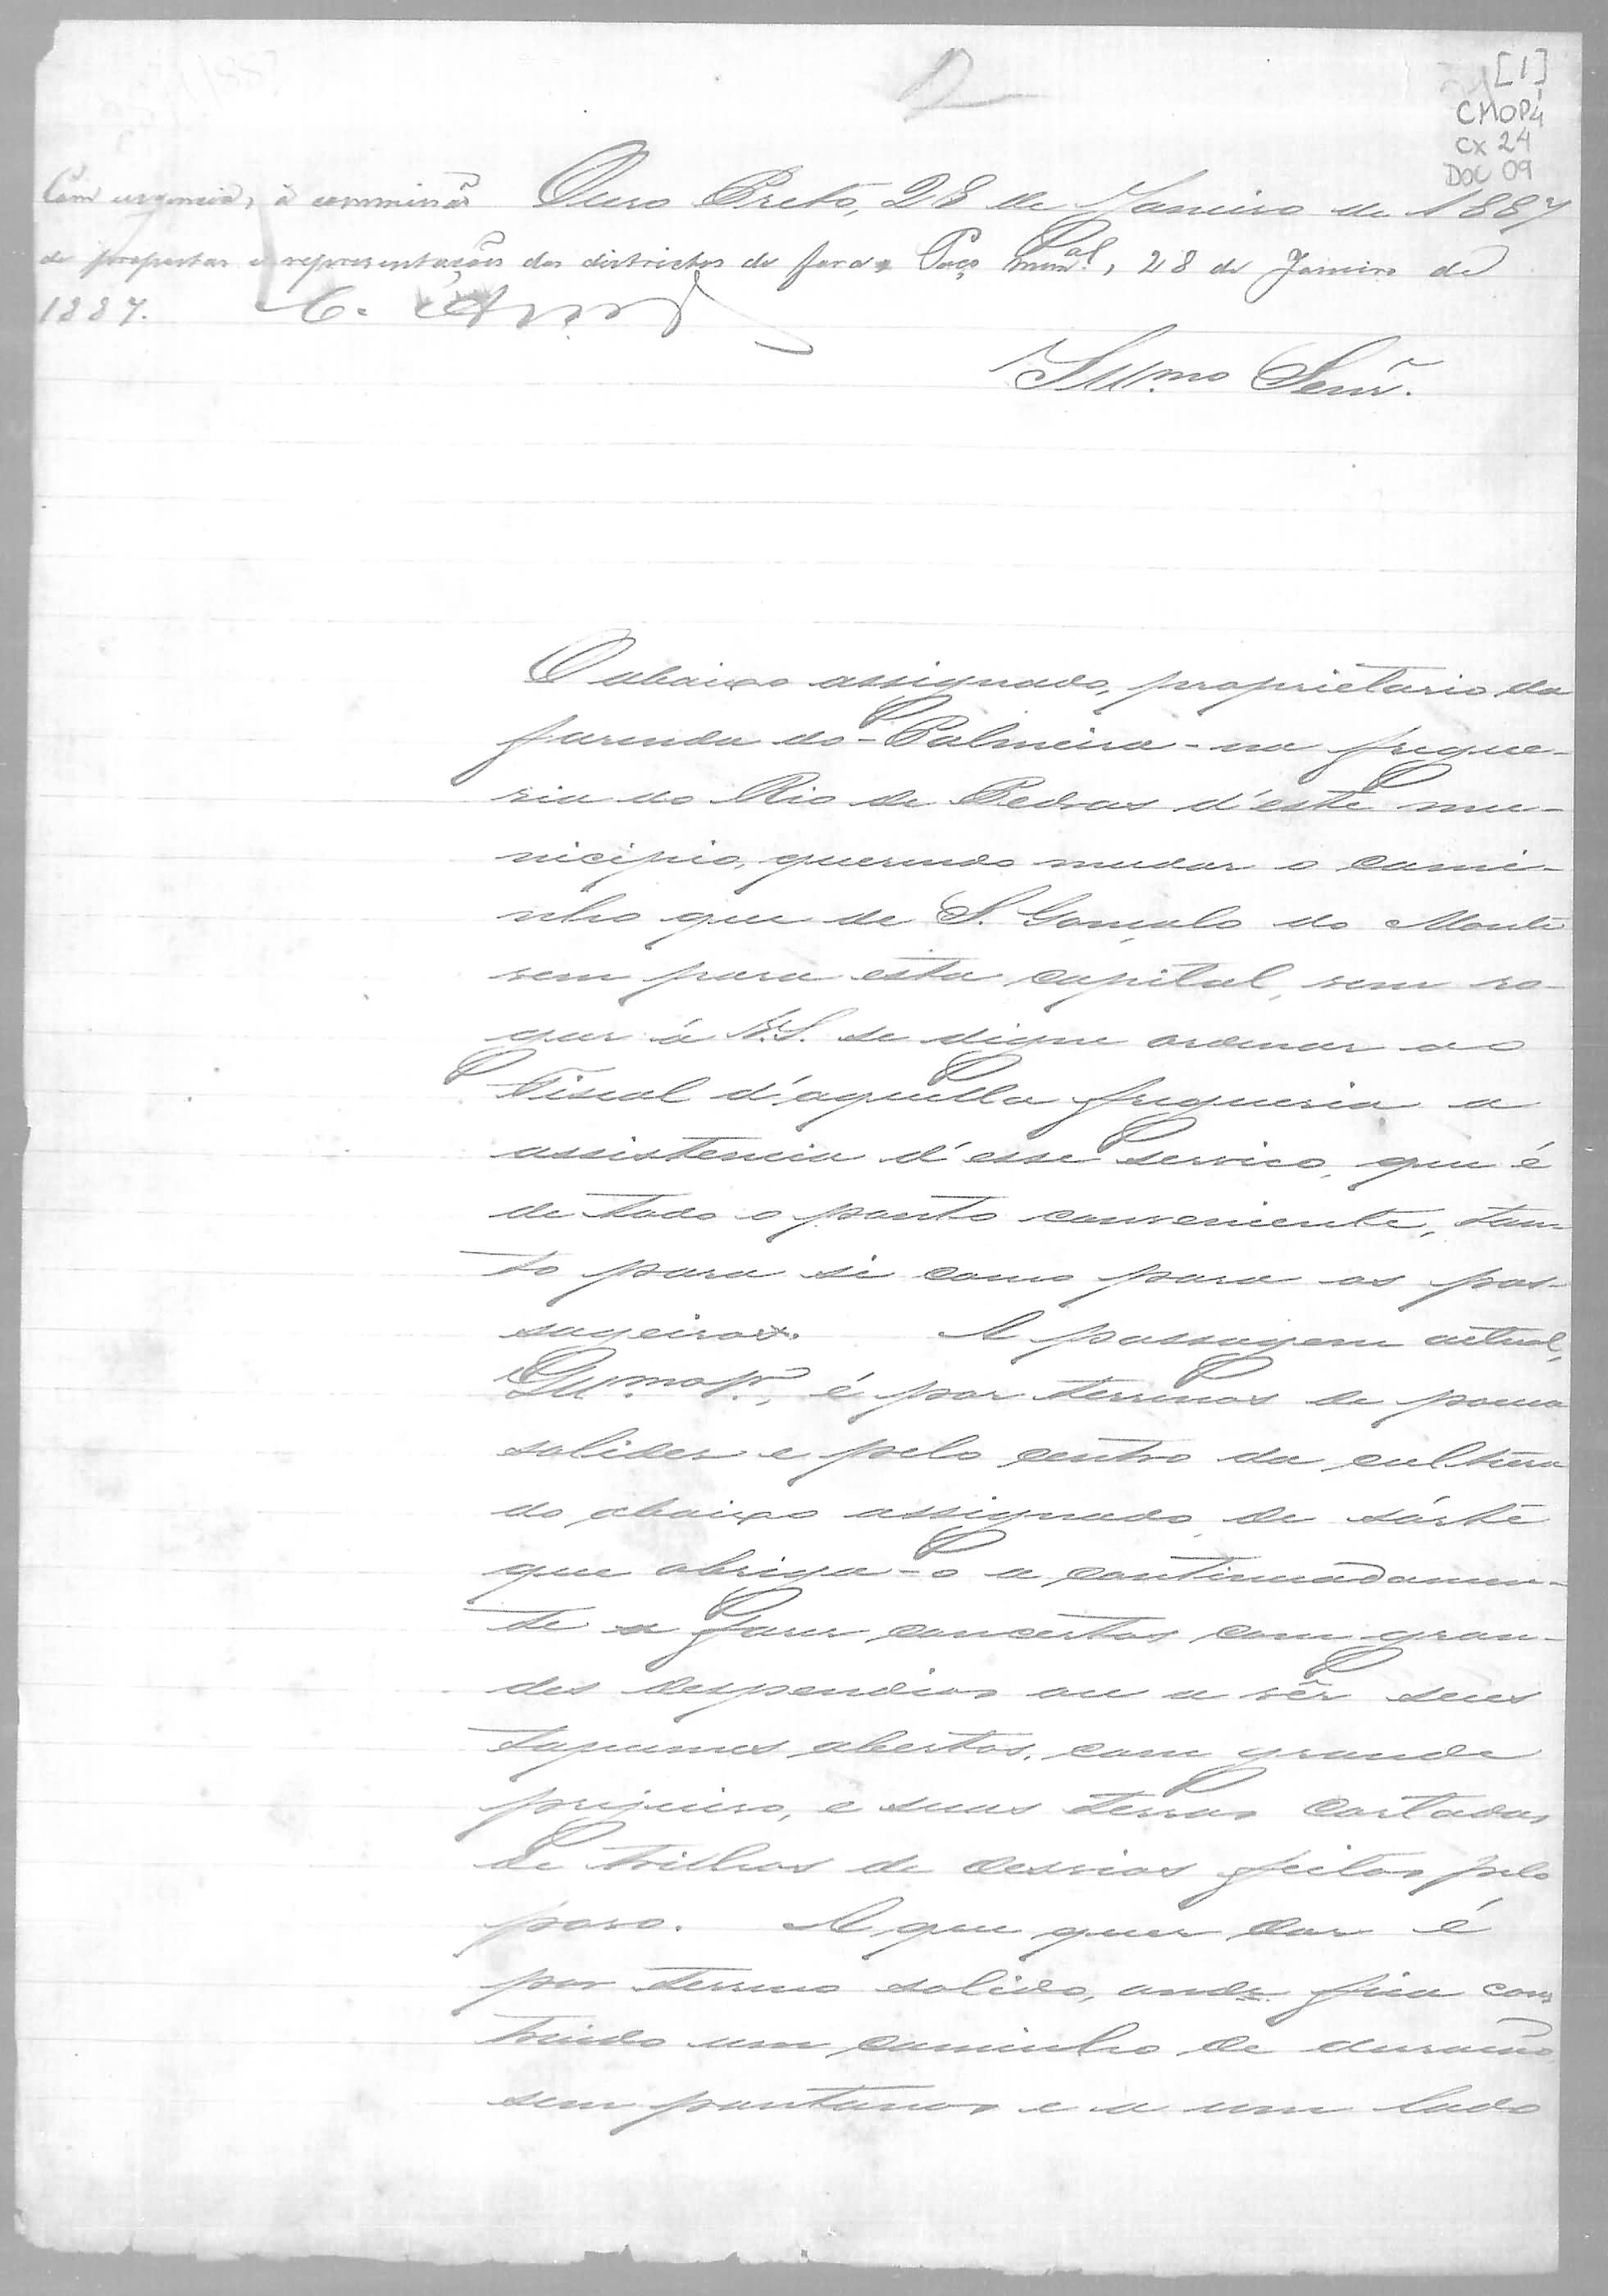 [1]
CMOP
Cx 24
DOC 09
Ouro Preto, 28 de Janeiro de 1887
Com urgencia, á commissão
de propostas e representações dos districtos de fora. Paço Mun.al, 28 de Janeiro de
1887.
Illmo Senr.
O abaixo assignado, proprietario da
fazenda do - Palmeira - na fregue-
sia do Rio de Pedras d'este mu-
nicipio, querendo mudar o cami-
nho que de S. Gonçalo do Monte
vem para esta capital, vem ro-
gar á V.S. se digne ordenar ao
Fiscal d'aquella freguesia a
assistencia d'esse serviço, que é
de todo o ponto conveniente, tan-
to para si como para os pas-
sageiros. A passagem actual,
Illmo Sr., é por terrenos de pouca
solidez e pelo centro da cultura
do abaixo assignado de sórte
que obriga-o a continuadamen-
te a fazer concertos com gran-
des despendios ou a vêr seus
tapumes abertos, com grande
prejuiso, e suas terras cortadas
de trilhos de desvios feitos pelo
povo. A que quer dar é
por terreno solido, onde fica cons
truido um caminho de duração
sem pantanos e a um lado